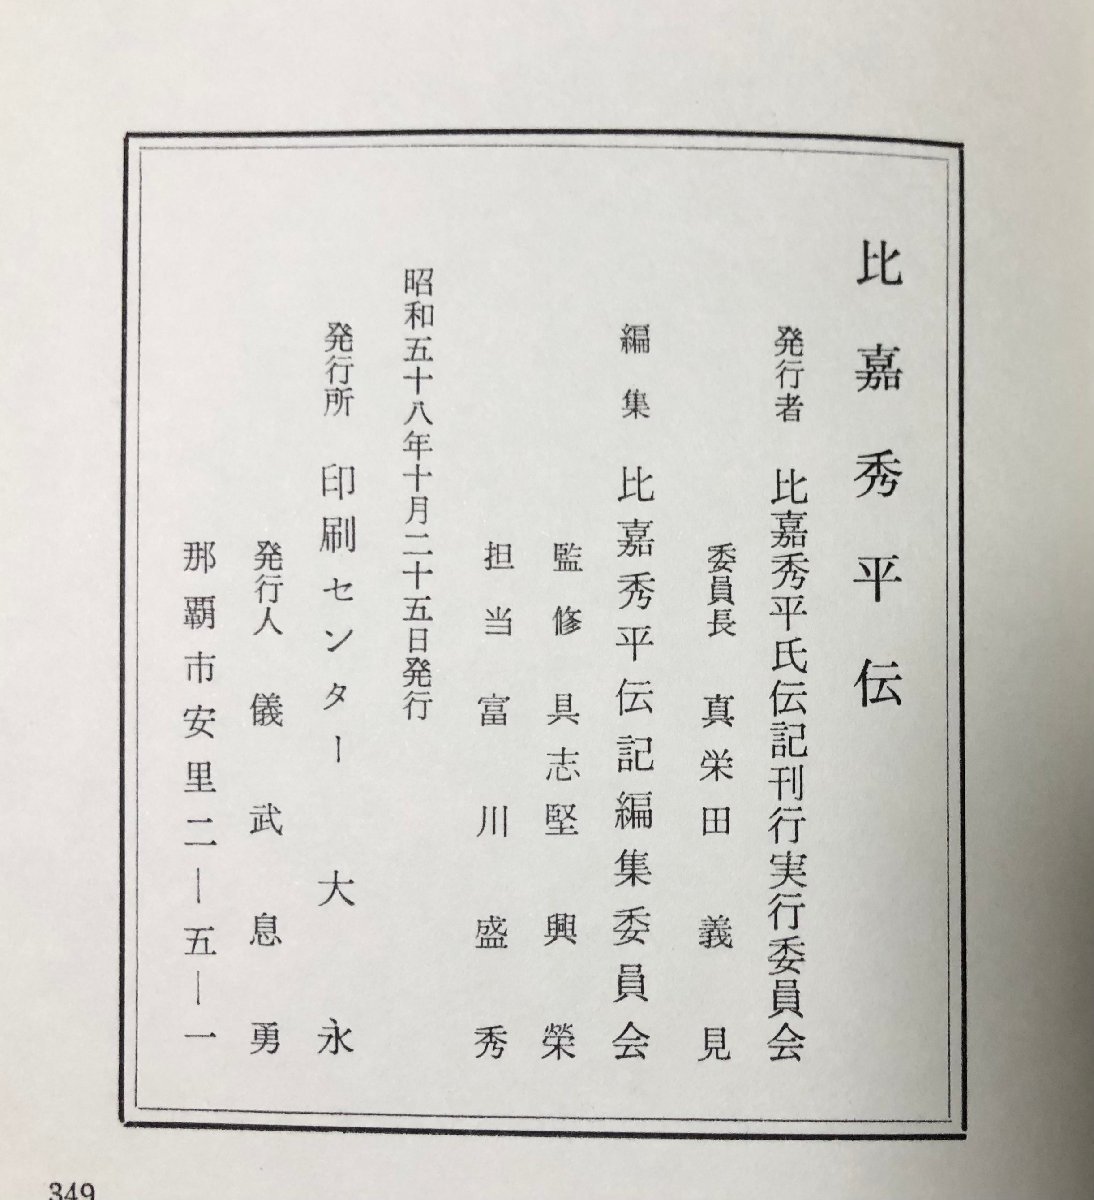 比嘉秀平伝
発行者 比嘉秀平氏伝記刊行実行委員会
委員長 真栄田義見
編集 比嘉秀平伝記編集委員会
監修 具志堅興榮
担当 富川盛秀
昭和五十八年十月二十五日発行
発行所 印刷センター大永
発行人 儀武息勇
那覇市安里二―五―一
349